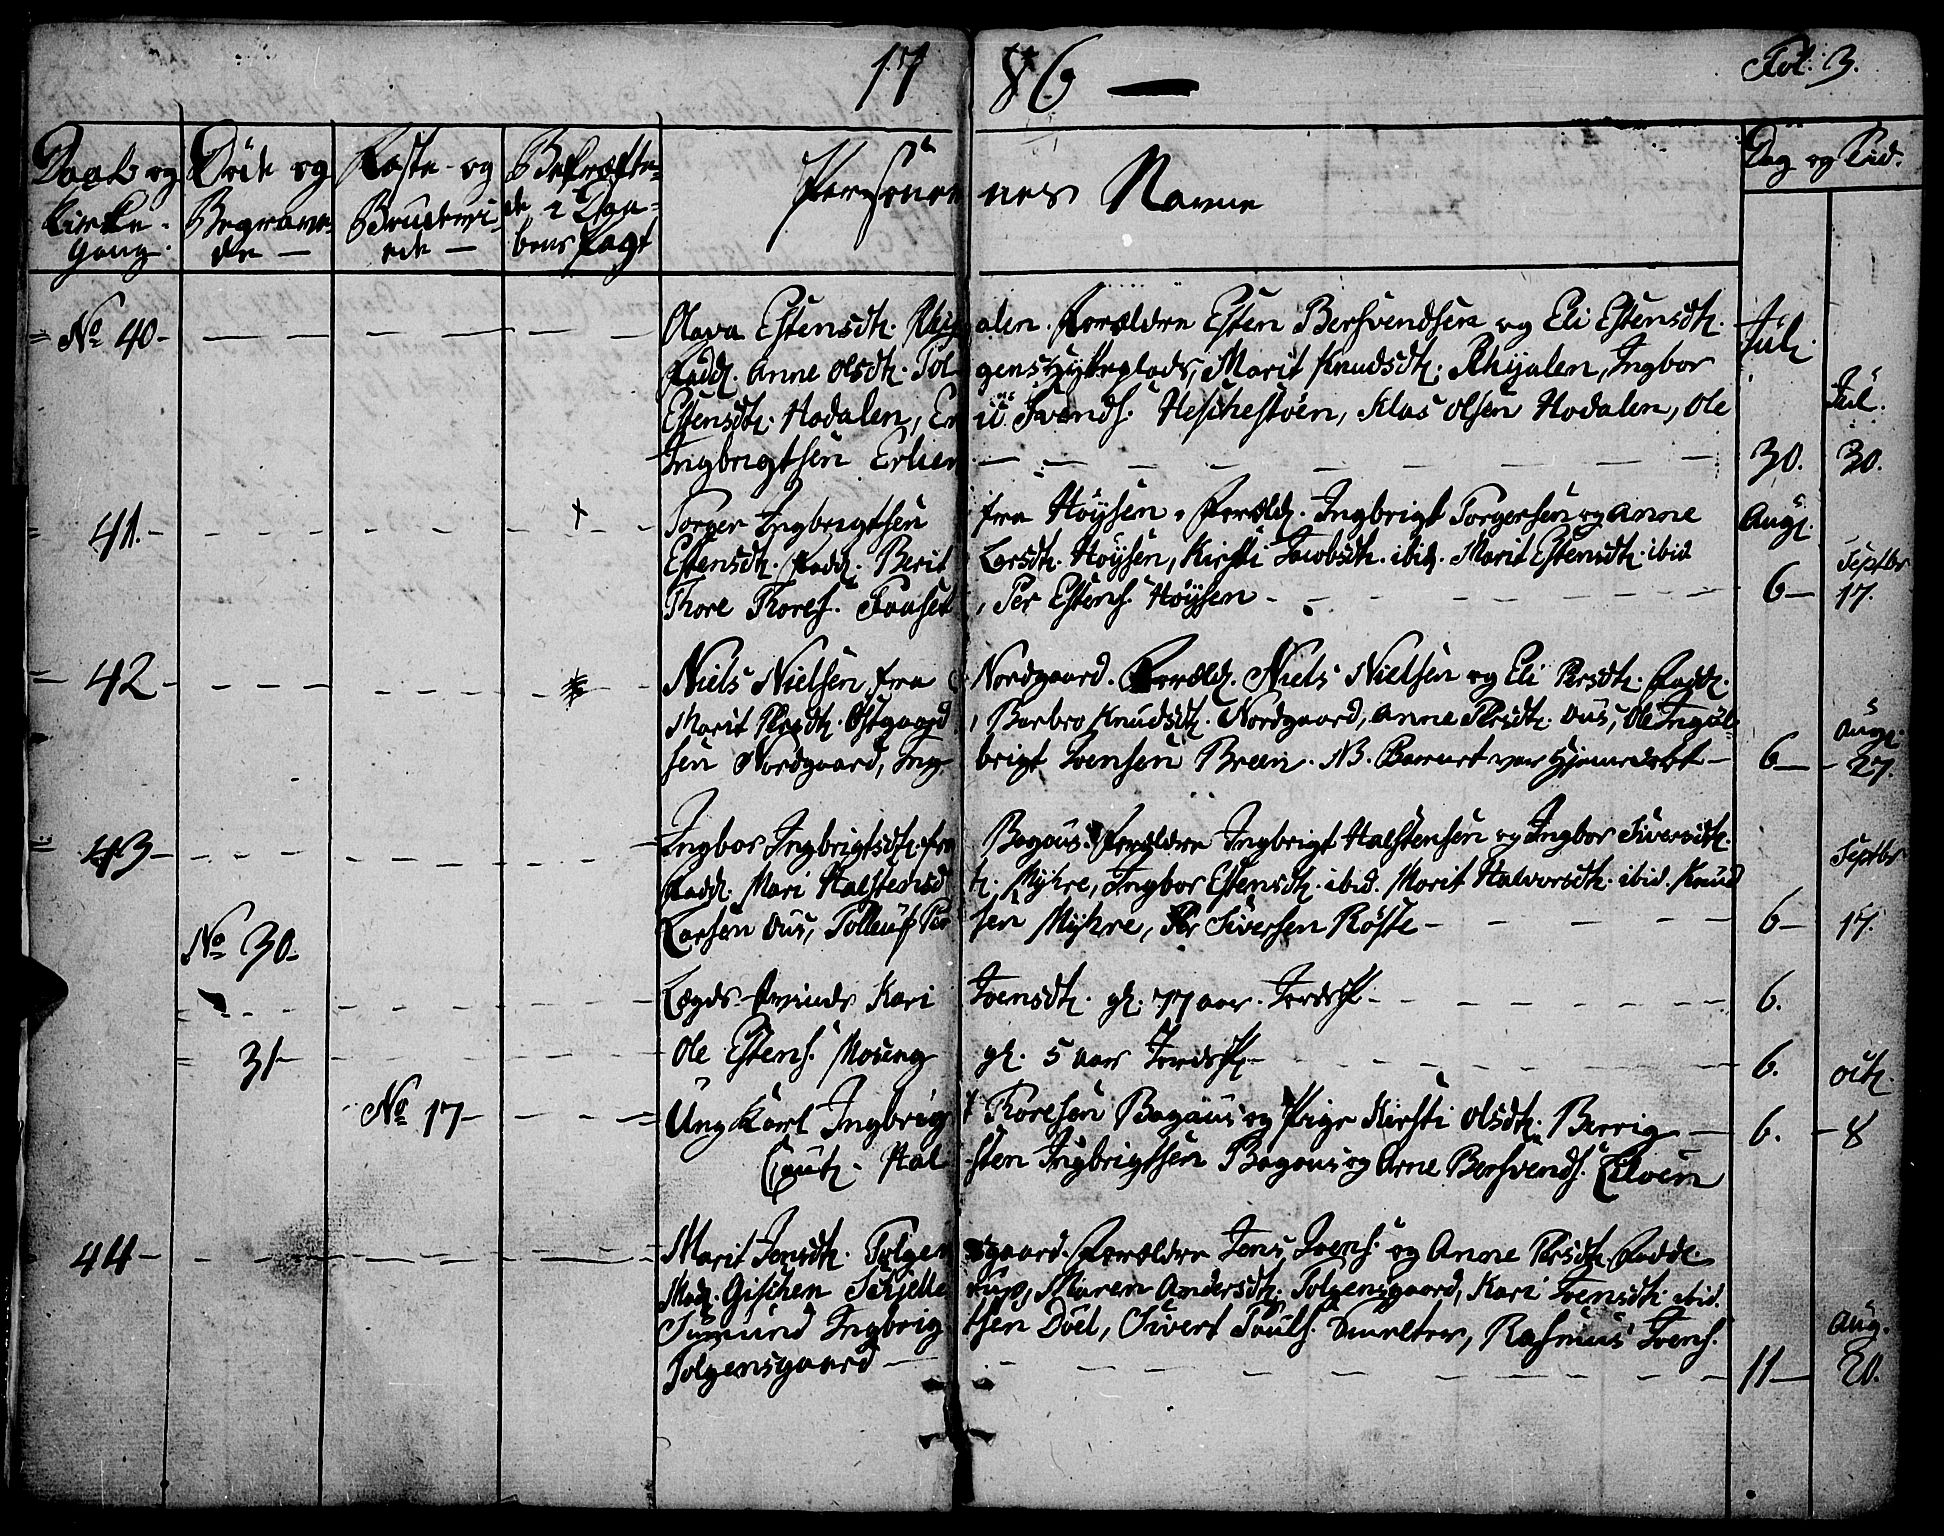 1786 — Fol: 3.
Daab og Kirke-Gang. Døde og Begravede — Fæste- og Brudeviede — Bekræftede i Daabens Pagt Personernes Navne Dag og Tid.
No 40 — Olava Estensdtr. Forældre Esten Bersvendsen og Eli Estensdtr. Juli
Fadd. Anne Olsdtr. Tolgens Hytteplads, Marit Knudsdtr. Rhyalen, Ingbor Jul.
Estensdtr. Hodalen, Svends. Heschestöen, Klas Olsen Hodalen, Ole
Ingbrigtsen Erlien — 30. 30.
41. — + Torger Ingbrigtsen fra Höysen. Foræld. Ingbrigt Torgersen og Anne Aug.
Estensdtr. Fadd. Berit Larsdtr. Höysen, Kirsti Jacobsdtr. ibid. Marit Estensdtr. ibid Septbr
Thore Thores. Faaset, Per Estens. Höysen — 6 — 17.
42 — Niels Nielsen fra Nordgaard. Foræld. Niels Nielsen og Eli Persdtr. Fadd.
Marit Persdtr. Östgaard, Barbro Knudsdtr. Nordgaard, Anne Persdtr. Ous, Ole Ingbl- Aug.
sen Nordgaard, Ingbrigt Joensen Breen. NB. Barnet var Hjemedøbt — 6 — 27.
43 — Ingbor Ingbrigtsdtr. fra Bagaus. Forældre Ingbrigt Halstensen og Ingbor Siversdtr. Septbr
Fadd. Mari Halstensdtr. Myhre, Ingbor Estensdtr. ibid. Marit Halvorsdtr. ibid. Knud
Larsen Ous, Tolleuf Persen Myhre, Per Siversen Röste — 6 — 17.
No 30 —
Lægds- Kari Joensdtr. gl. 77 aar. Jords — 6.
31 — Ole Estens. Moseng gl. 5 aar Jords — 6. Octr.
No 17 — Ung Karl Ingbrigt Thoresen Bagaus og Pige Kirsti Olsdtr. Berrig — 6. — 8
Caut. Halsten Ingbrigtsen Bagous og Arne Bersvends. Eidoen
44 — Marit Jensdtr. Tolgensgaard. Forældre Jens Joens. og Anne Persdtr. Fadd.
Mad. Gischen Schjellerup, Maren Andersdtr. Tolgensgaard, Kari Joensdtr. ibid.
Simund Ingbrigtsen Döel, Sivert Pauls. Rasmus Joens. Aug.
Tolgensgaard — 11 — 20.